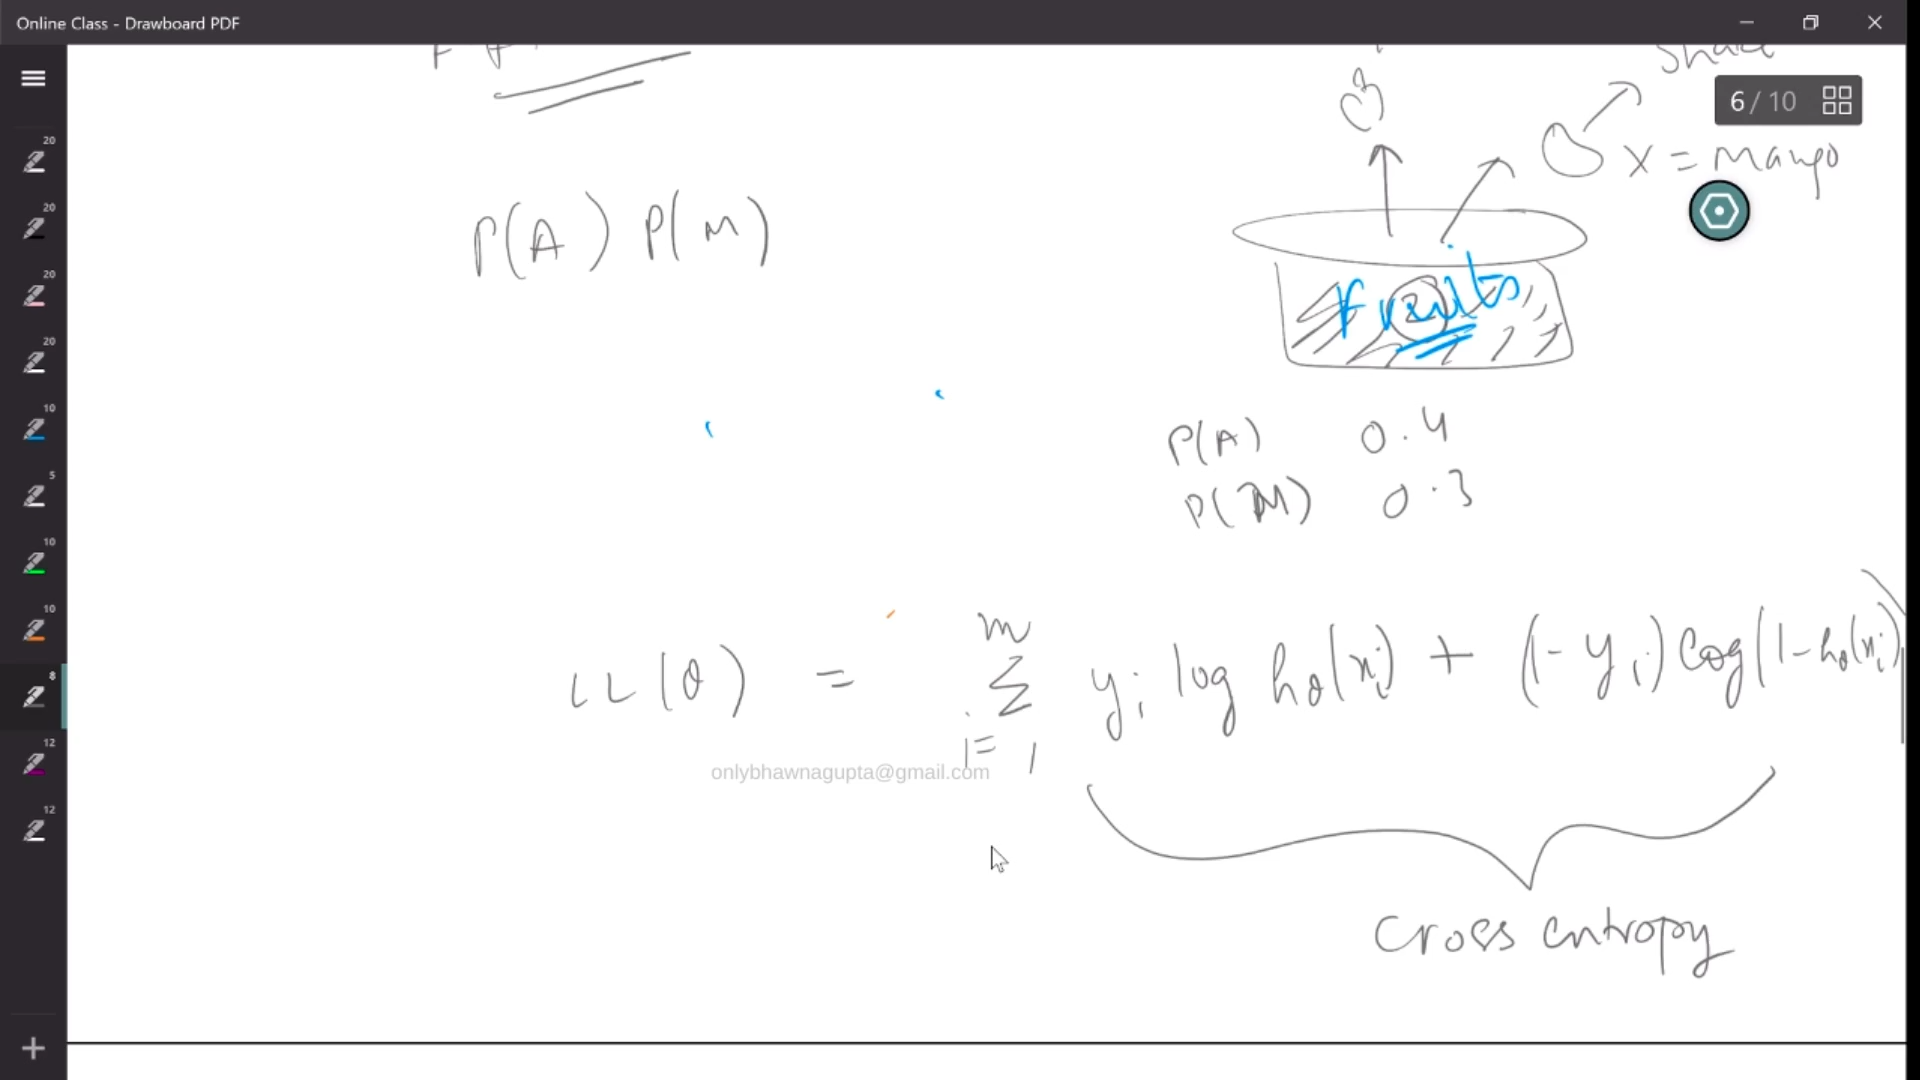 Online Class - Drawboard PDF
6 / 10
20
20
20
20
10
5
10
10
8
12
12
X = Mango
P(A) P(M)
Fruits
P(A) 0.4
P(M) 0.3
LL(θ) = m Σ i=1 yi log hθ(xi) + (1-yi) log(1-hθ(xi))
onlybhawnagupta@gmail.com
Cross entropy